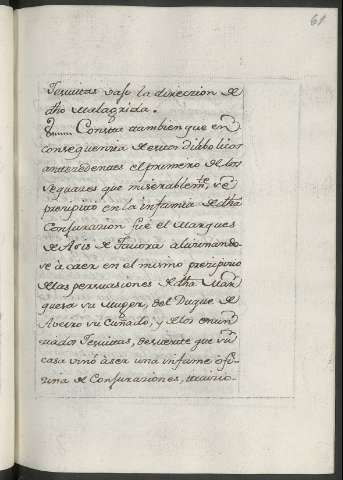 61
Jesuitas bajo la direccion de
dho Malagrida.
Consta tambien que en
consequencia de estos diabolicos
antecedentes el primero de los
sequaces que miserablem.te se
precipitò en la infamia de dha
Conjuracion fuè el Marques
Luis de Tavora
se à caer en el mismo precipicio
de las persuasiones de dha Mar
quesa su Muger, del Duque de
Aveiro su Cuñado, y de los enun
ciados Jesuitas, de suerte que su
casa vinò à ser una infame ofi-
cina de Conjuraciones,